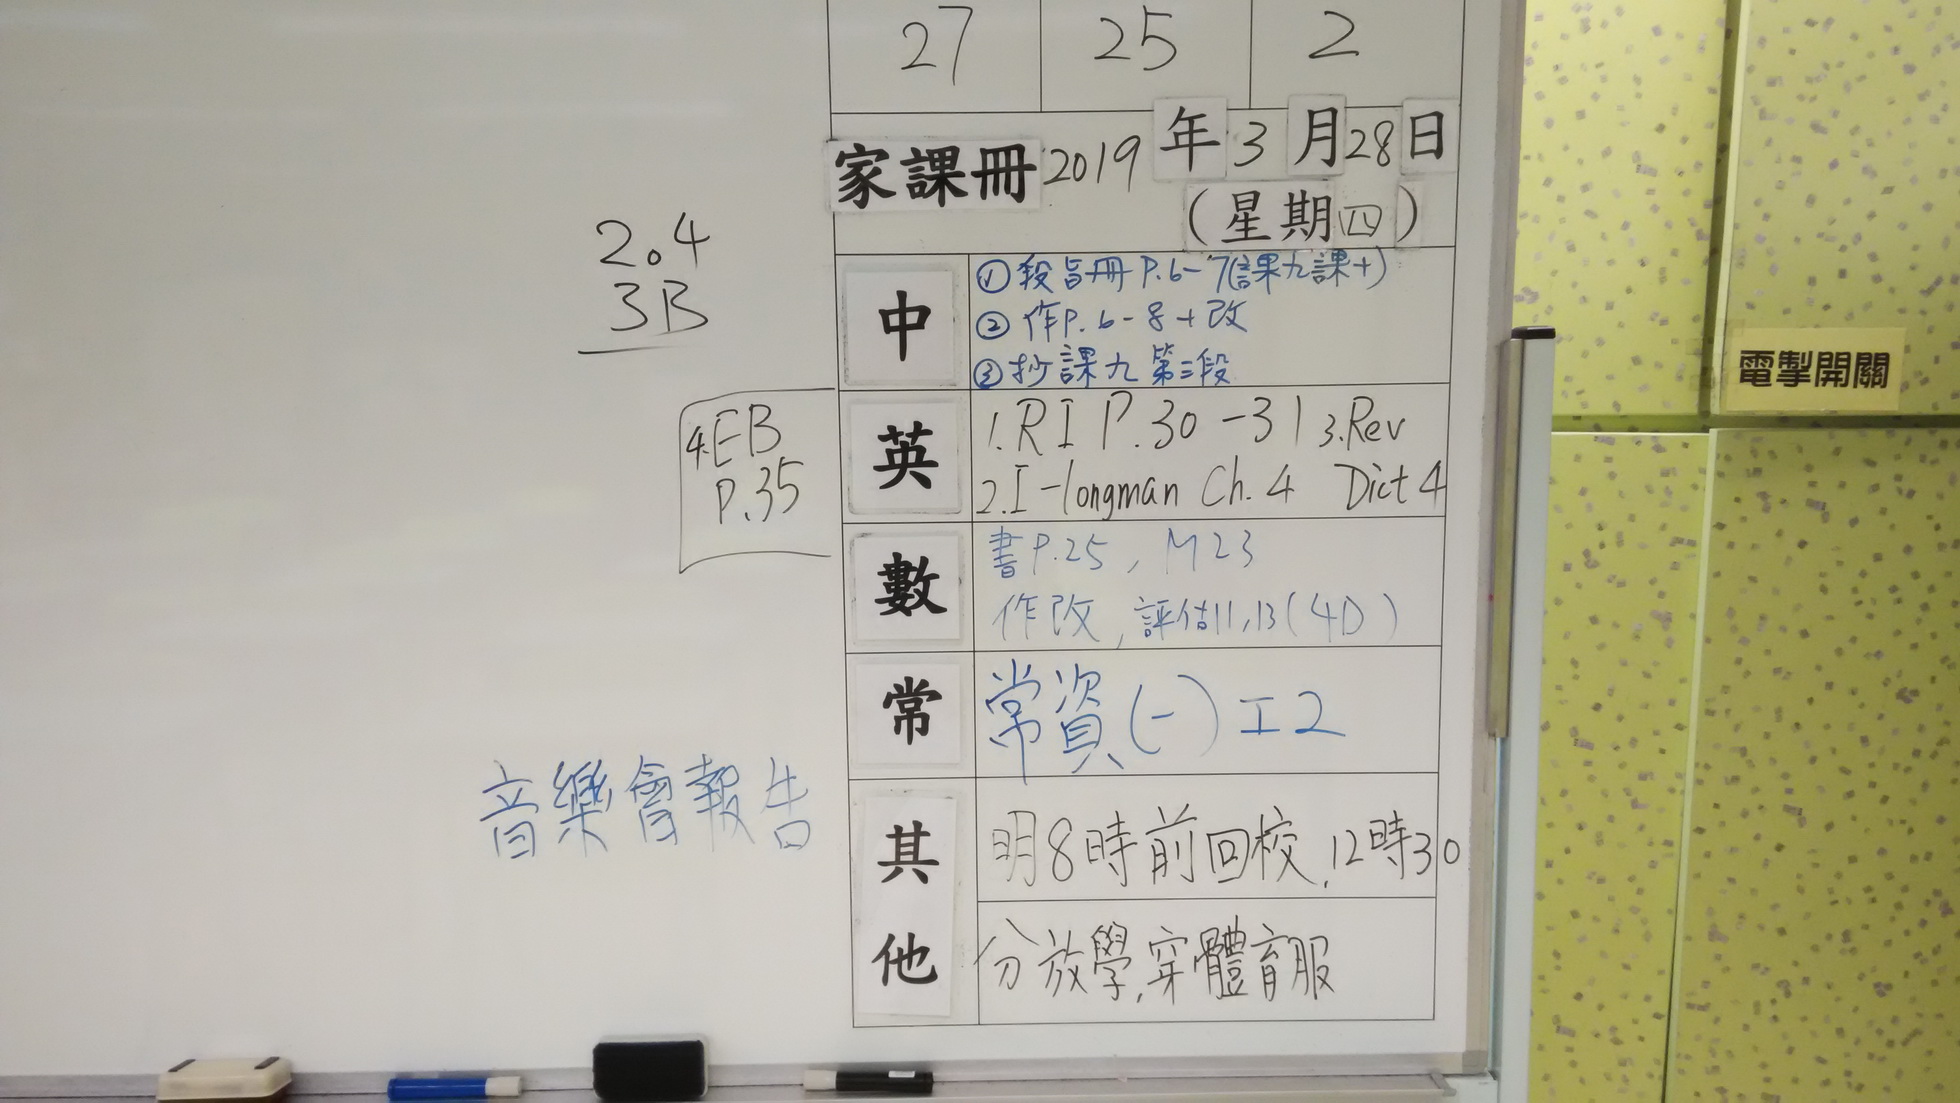 27 25 2
家課冊 2019 年 3 月 28 日
(星期四)
2.4
3B
中
① 段旨冊 P.6-7(課九課十)
② 作P.6-8+改
③ 抄課九第三段
英
1.RI P.30-31 3.Rev
2.I-longman Ch.4 Dict 4
4.EB
P.35
數
書P.25, M23
作改, 評估11,13(4D)
常
常資(一) 工2
音樂會報告
其他
明8時前回校,12時30
分放學,穿體育服
電掣開關